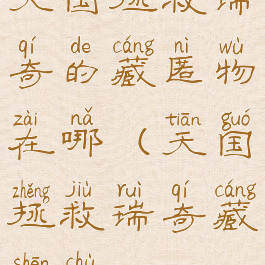 天国拯救瑞
qí de cáng nì wù
奇的藏匿物
zài nǎ tiān guó
在哪（天国
zhěng jiù ruì qí cáng
拯救瑞奇藏
shēn chù